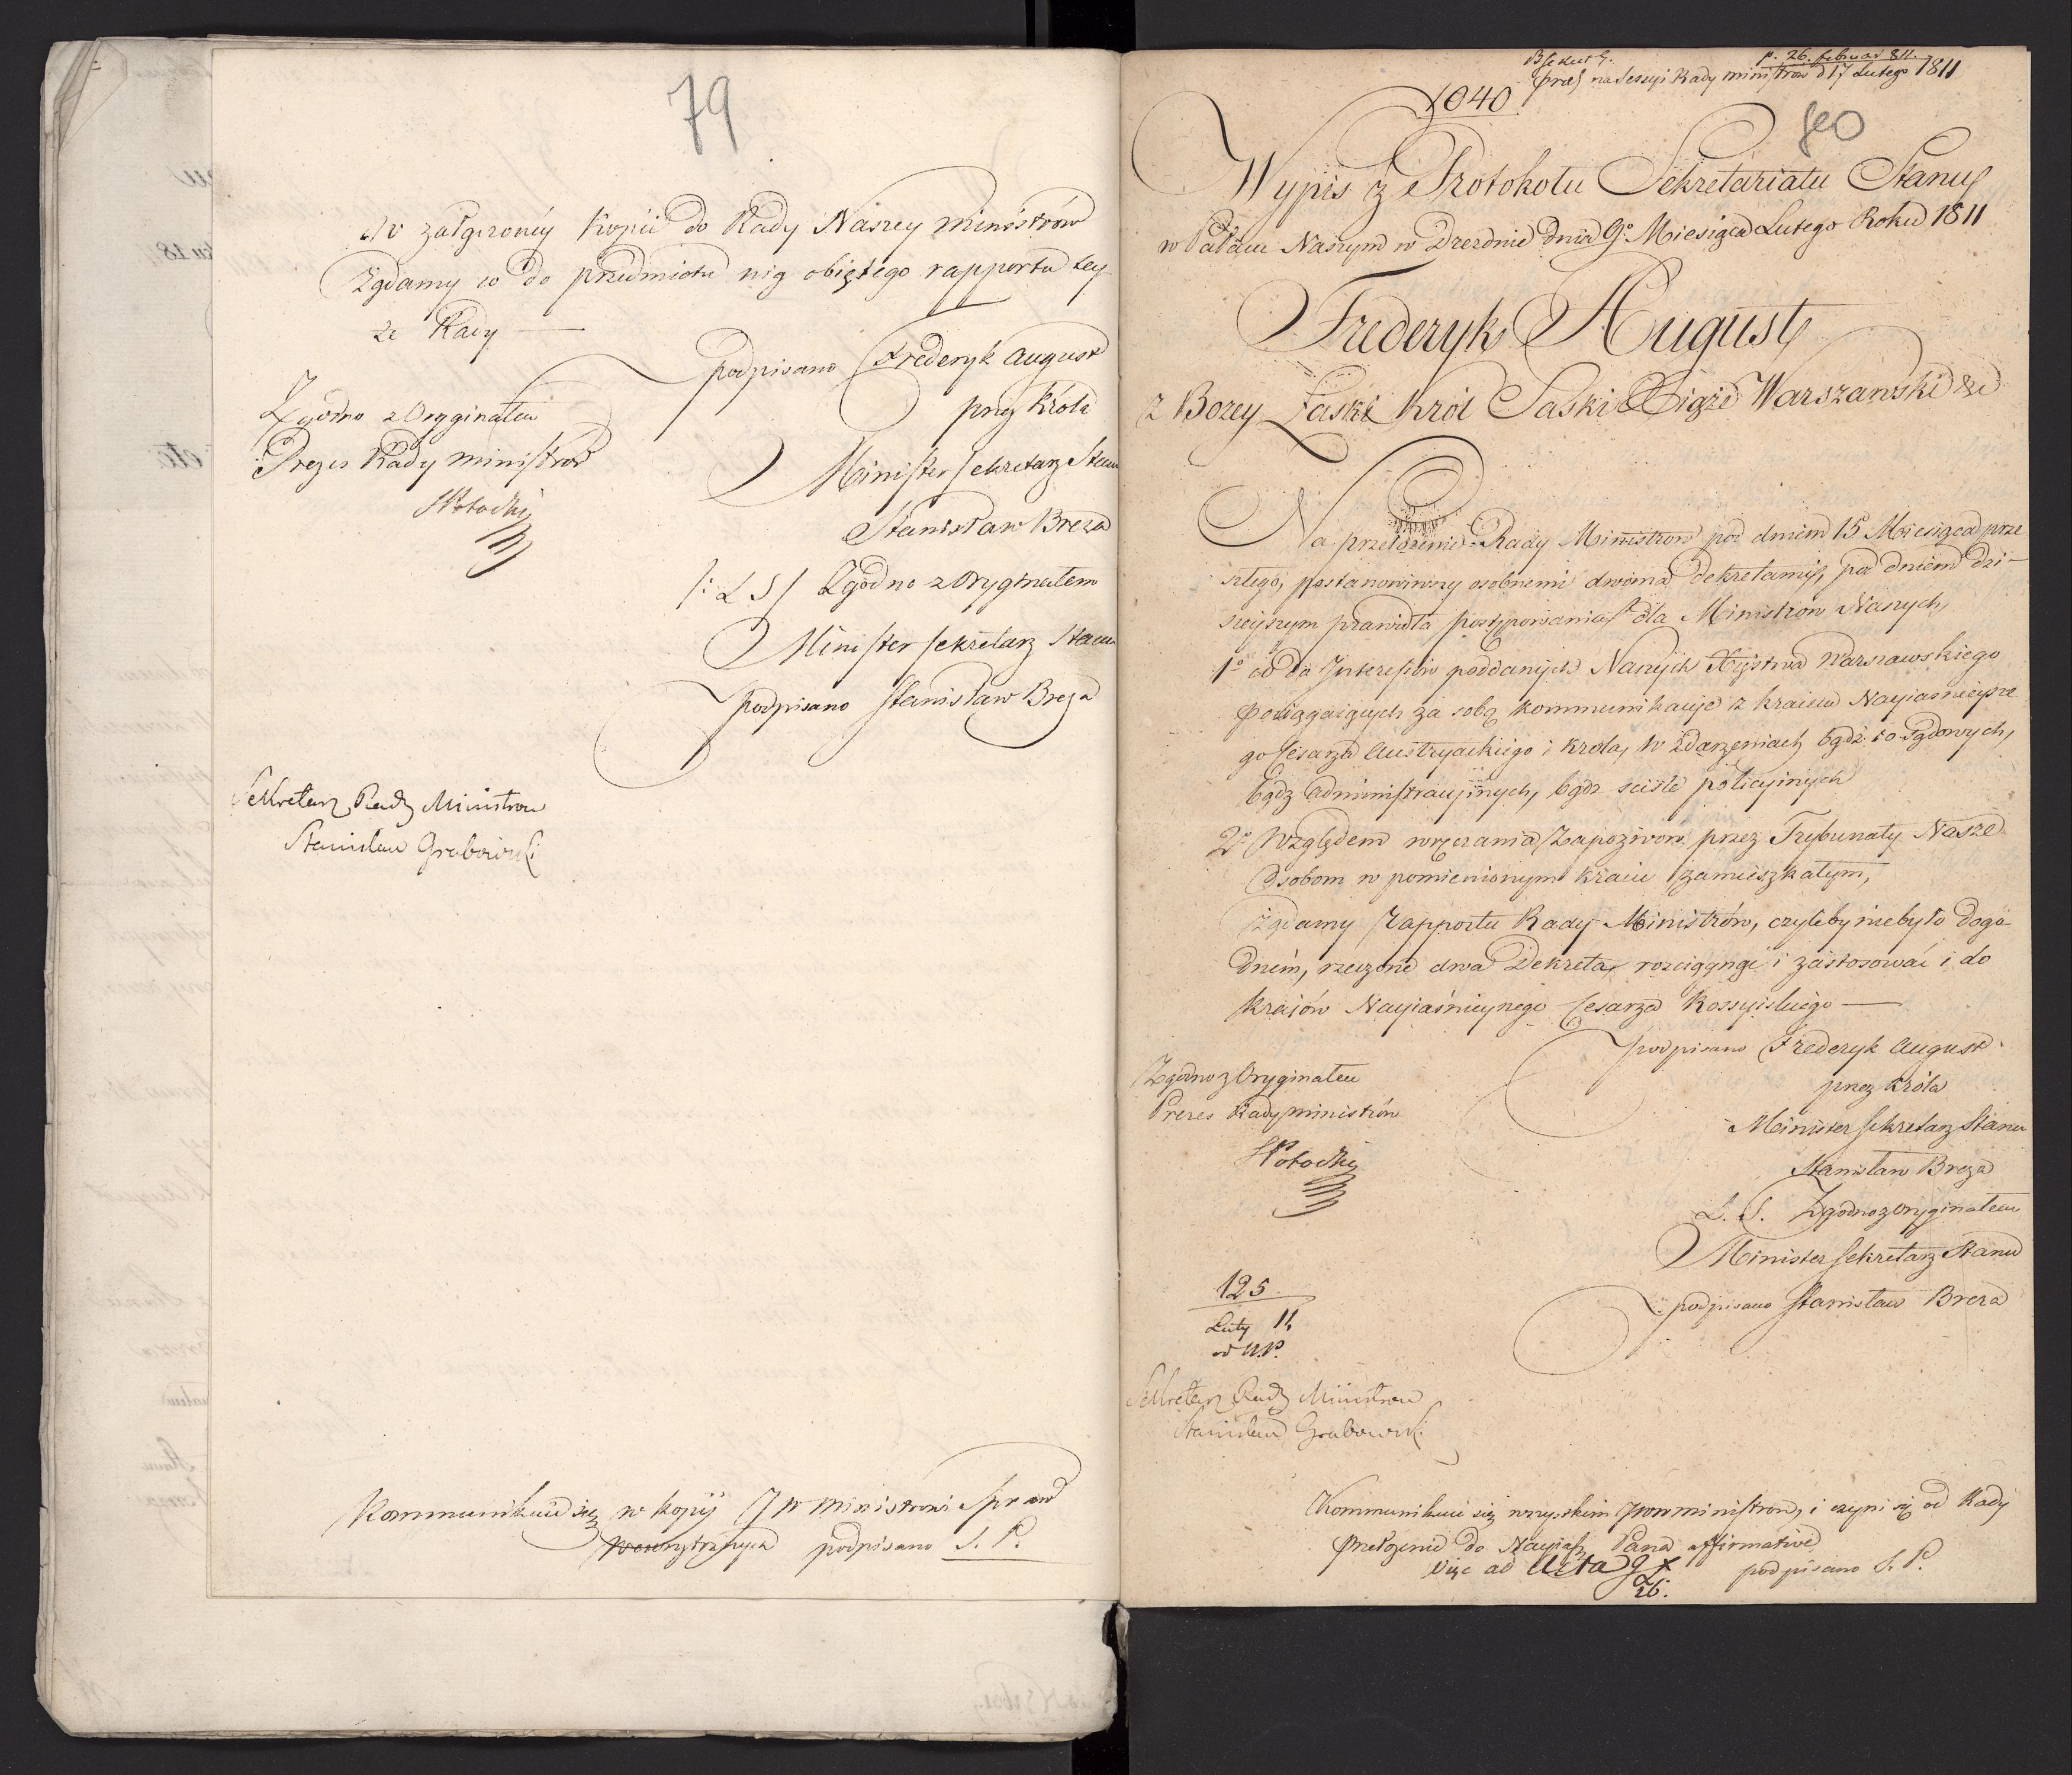 79
w załączoney kopii do Rady Naszey Ministrów
żądamy co do przedmiotu nią obiętego rapportu tey-
że Rady —
podpisano Frederyk August
przez Króla
Minister Sekretarz Stanu
Stanisław Breza
/: L S / Zgodno z Oryginałem
Minister Sekretarz Stanu
podpisano Stanisław Breza
Zgodno z Oryginałem
Prezes Rady Ministrów
SPotocki
Sekretarz Rady Ministrow
Stanisław Grabowski
Kommunikuie się w kopij JW Ministrowi Spraw
Wewnętrznych podpisano S. P.
p. 26. februar 811.
praes na Sessyi Rady Ministrow d 17 Lutego 1811
1040
80
Wypis z Protokołu Sekretariatu Stanu
w Pałacu Naszym w Dreznie dnia 9º Miesiąca Lutego Roku 1811
Frederyk August
z Bozey Łaski Król Saski Xiąże Warszawski &c
Na przełożenie Rady Ministrow pod dniem 15 Miesiąca prze
szłego, postanowiwszy osobnemi dwoma Dekretami, pod dniem dzi-
sieyszym prawidła postępowania dla Ministrow Naszych,
1º co do Interessów poddanych Naszych Xięstwa Warszawskiego
pociągaiących za sobą kommunikacye z kraiem Nayiasnieysze
go Cesarza Austryackiego i Krola, w zdarzeniach bądź to sądowych,
bądz administracyinych, bądz sciśle policyinych
2º Względem wręczania Zapozwow przez Trybunały Nasze
Osobom w pomienionym kraiu zamieszkałym,
żądamy rapportu Rady Ministrów, czyliby niebyło dogo-
dném, rzeczone dwa Dekreta, rosciągnąć i zastosować i do
kraiów Nayiaśnieyszego Cesarza Rossyiskiego —
podpisano Frederyk August
przez Króla
Minister Sekretarz Stanu
Stanisław Breza
L. S. Zgodno z Oryginałem
Minister Sekretarz Stanu
podpisano Stanisław Breza
Zgodno z Oryginałem
Prezes Rady Ministrów
SPotocki
125
Luty 11.
Sekretarz Rady Ministrow
Stanisław Grabowski
Kommunikuie się wszystkim JWW Ministrom, i czyni się od Rady
przełożenie do Nayiaś Pana affirmative
więc ad Acta
podpisano S. P.
26.